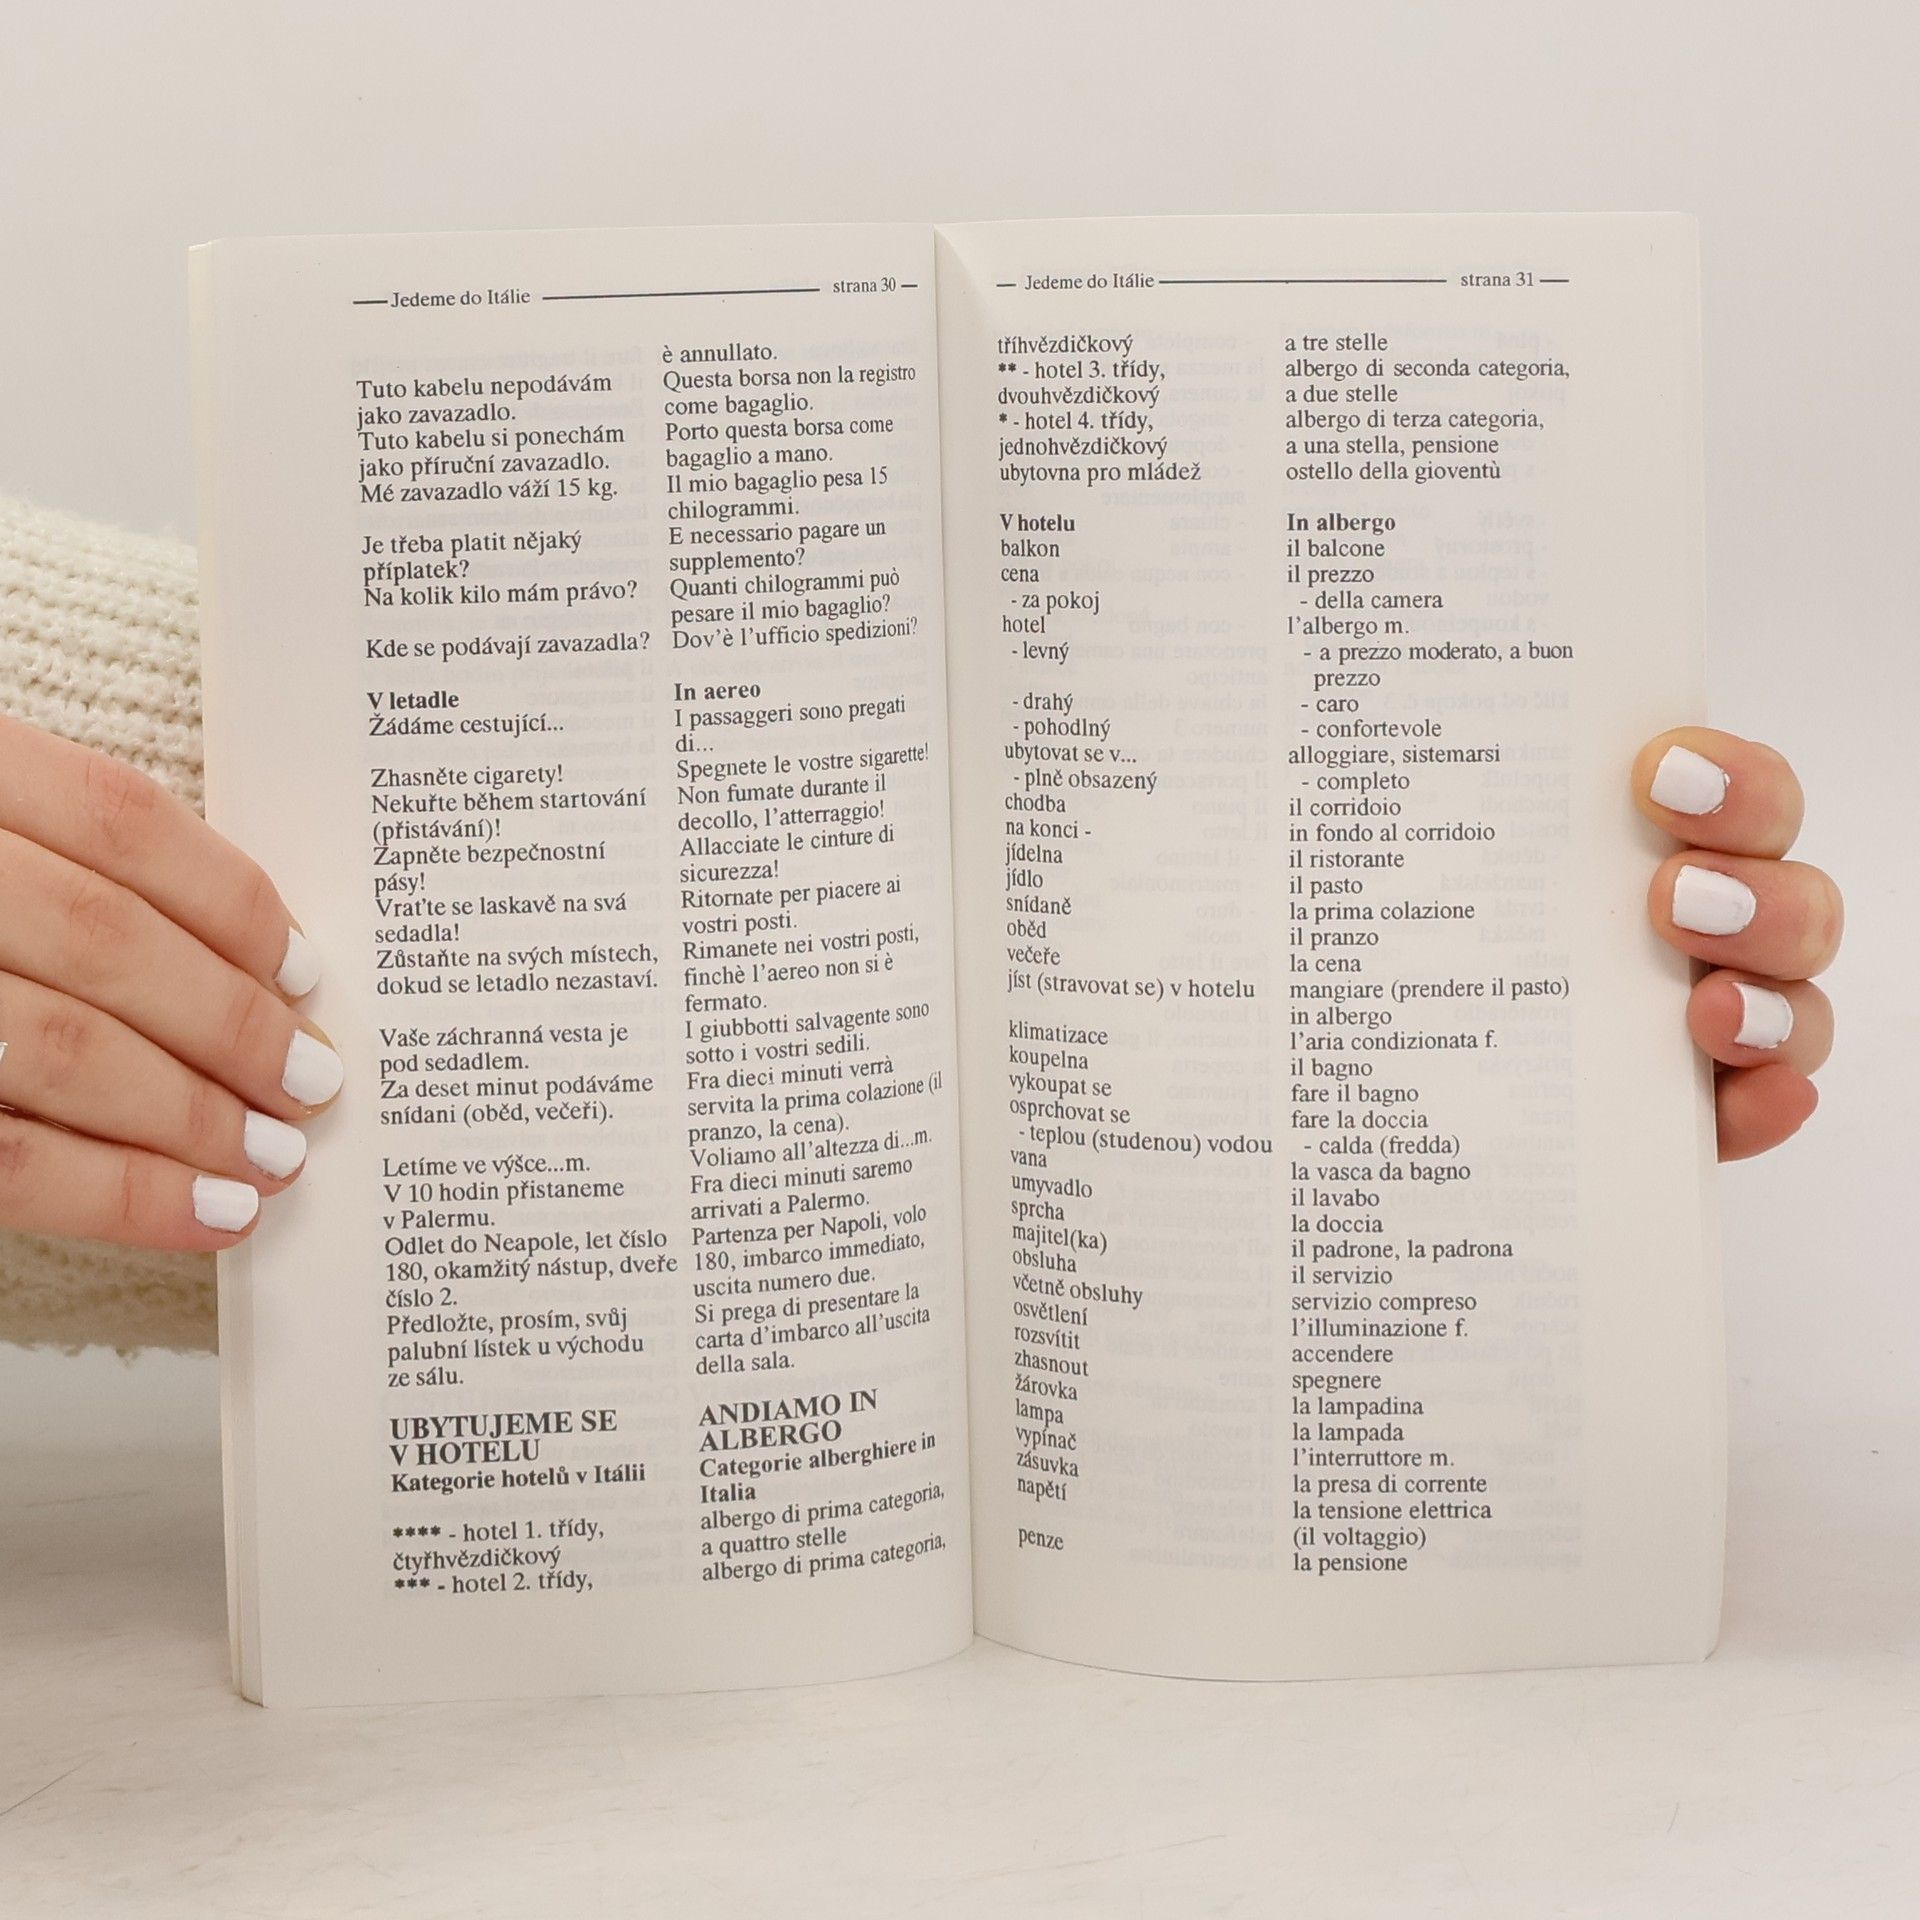 Jedeme do Itálie strana 30
è annullato.
Tuto kabelu nepodávám
jako zavazadlo.
Tuto kabelu si ponechám
jako příruční zavazadlo.
Mé zavazadlo váží 15 kg.
Je třeba platit nějaký
příplatek?
Na kolik kilo mám právo?
Kde se podávají zavazadla?
Questa borsa non la registro
come bagaglio.
Porto questa borsa come
bagaglio a mano.
Il mio bagaglio pesa 15
chilogrammi.
E necessario pagare un
supplemento?
Quanti chilogrammi può
pesare il mio bagaglio?
Dov'è l'ufficio spedizioni?
V letadle
Žádáme cestující...
Zhasněte cigarety!
Nekuřte během startování
(přistávání)!
Zapněte bezpečnostní
pásy!
Vraťte se laskavě na svá
sedadla!
Zůstaňte na svých místech,
dokud se letadlo nezastaví.
Vaše záchranná vesta je
pod sedadlem.
Za deset minut podáváme
snídani (oběd, večeři).
Letíme ve výšce...m.
V 10 hodin přistaneme
v Palermu.
Odlet do Neapole, let číslo
180, okamžitý nástup, dveře
číslo 2.
Předložte, prosím, svůj
palubní lístek u východu
ze sálu.
In aereo
I passaggeri sono pregati
di...
Spegnete le vostre sigarette!
Non fumate durante il
decollo, l'atterraggio!
Allacciate le cinture di
sicurezza!
Ritornate per piacere ai
vostri posti.
Rimanete nei vostri posti,
finchè l'aereo non si è
fermato.
I giubbotti salvagente sono
sotto i vostri sedili.
Fra dieci minuti verrà
servita la prima colazione (il
pranzo, la cena).
Voliamo all'altezza di...m.
Fra dieci minuti saremo
arrivati a Palermo.
Partenza per Napoli, volo
180, imbarco immediato,
uscita numero due.
Si prega di presentare la
carta d'imbarco all'uscita
della sala.
UBYTUJEME SE
V HOTELU
Kategorie hotelů v Itálii
**** - hotel 1. třídy,
čtyřhvězdičkový
*** - hotel 2. třídy,
ANDIAMO IN
ALBERGO
Categorie alberghiere in
Italia
albergo di prima categoria,
a quattro stelle
albergo di prima categoria,
Jedeme do Itálie strana 31
tříhvězdičkový
** - hotel 3. třídy,
dvouhvězdičkový
* - hotel 4. třídy,
jednohvězdičkový
ubytovna pro mládež
a tre stelle
albergo di seconda categoria,
a due stelle
albergo di terza categoria,
a una stella, pensione
ostello della gioventù
V hotelu
balkon
cena
- za pokoj
hotel
- levný
- drahý
- pohodlný
ubytovat se v...
- plně obsazený
chodba
na konci -
jídelna
jídlo
snídaně
oběd
večeře
jíst (stravovat se) v hotelu
klimatizace
koupelna
vykoupat se
osprchovat se
- teplou (studenou) vodou
vana
umyvadlo
sprcha
majitel(ka)
obsluha
včetně obsluhy
osvětlení
rozsvítit
zhasnout
žárovka
lampa
vypínač
zásuvka
napětí
penze
In albergo
il balcone
il prezzo
- della camera
l'albergo m.
- a prezzo moderato, a buon
prezzo
- caro
- confortevole
alloggiare, sistemarsi
- completo
il corridoio
in fondo al corridoio
il ristorante
il pasto
la prima colazione
il pranzo
la cena
mangiare (prendere il pasto)
in albergo
l'aria condizionata f.
il bagno
fare il bagno
fare la doccia
- calda (fredda)
la vasca da bagno
il lavabo
la doccia
il padrone, la padrona
il servizio
servizio compreso
l'illuminazione f.
accendere
spegnere
la lampadina
la lampada
l'interruttore m.
la presa di corrente
la tensione elettrica
(il voltaggio)
la pensione